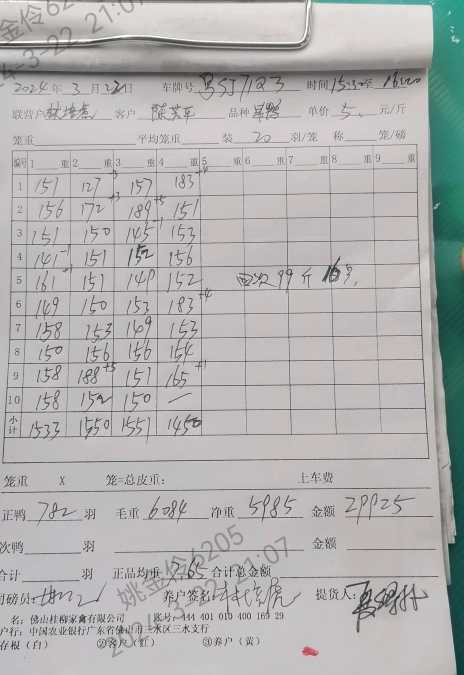 姚金伶6205
2024-3-22 21:07
2024年 3月 22日 车牌号 时间15:30至
联营户 客户 品种 单价 5. 元/斤
笼重 平均笼重 装 20 羽/笼 称 笼/磅
编号 1 重 2 重 3 重 4 重 5 重 6 重 7 重 8 重 9 重
1 151 127 +3 157 183 +4
2 156 172 +3 189 +5 151
3 151 150 145 -1 153
4 141 -1 151 152 156
5 161 -1 151 140 152
6 149 150 153 183 +4
7 158 153 149 153
8 150 156 156 154
9 158 188 +5 151 165 +1
10 158 152 150 —
小计 1533 1550 1551 1450
99斤
笼重 X 笼=总皮重: 上车费
正鸭 782 羽 毛重 6084 净重 5985 金额 29925
次鸭 羽 金额
合计 羽 正品均重 7.65 合计总金额
司磅员: 养户签名: 提货人:
名: 佛山桂柳家禽有限公司 账号: 444 401 010 400 169 29
户行: 中国农业银行广东省佛山市三水区三水支行
存根(白) ②客户(红) ③养户(黄)